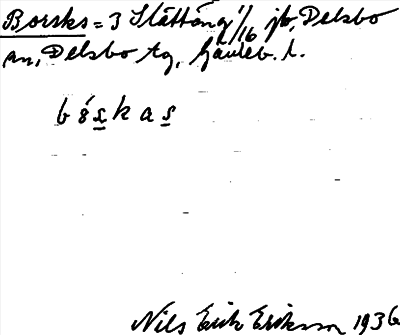 Borsks = 3 Stättäng 1/16 jb, Delsbo
sn, Delsbo tg, Gävleb. l.
bó̤s̲kas̲
Nils Erik Eriksson 1936